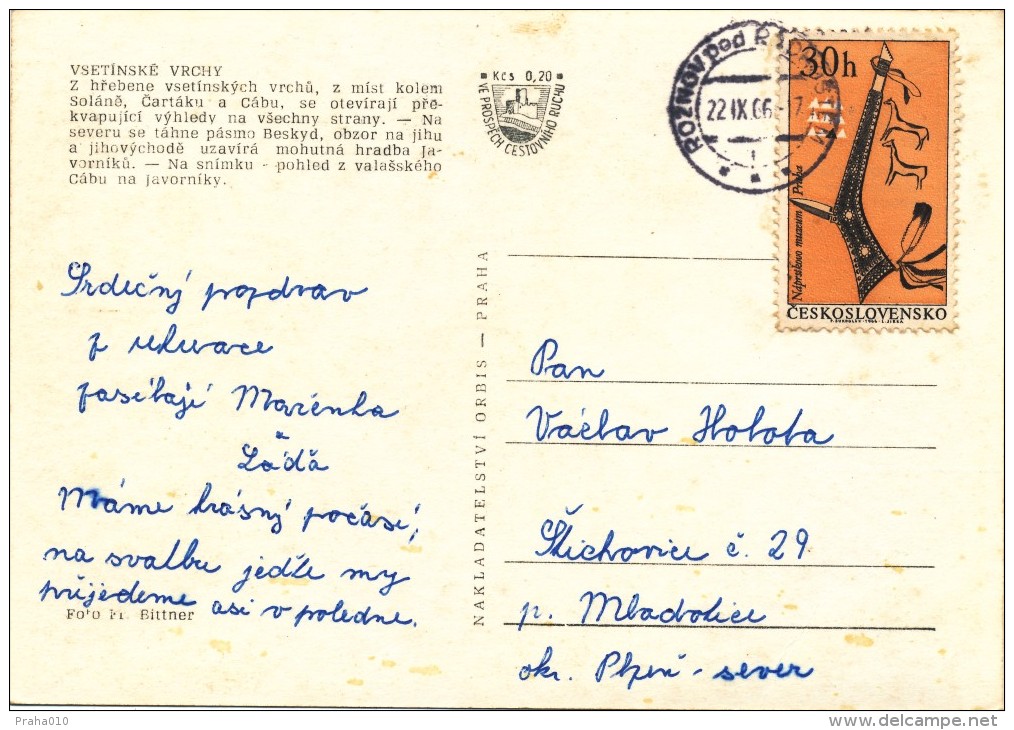 VSETÍNSKÉ VRCHY
Z hřebene vsetínských vrchů, z míst kolem
Soláně, Čartáku a Cábu, se otevírají pře-
kvapující výhledy na všechny strany. — Na
severu se táhne pásmo Beskyd, obzor na jihu
a jihovýchodě uzavírá mohutná hradba Ja-
vorníků. — Na snímku - pohled z valašského
Cábu na Javorníky.
Kčs 0,20
VE PROSPĚCH CESTOVNÍHO RUCHU
ROŽNOV pod RADHOŠTĚM
22.IX.66-17
30h
Náprstkovo muzeum Praha
ČESKOSLOVENSKO
Srdečný pozdrav
z rekreace
zasílají Mařenka
Láďa
Máme krásný počásí,
na svatbu jedťe my
přijedeme asi v poledne.
Foto Fr. Bittner
NAKLADATELSTVÍ ORBIS — PRAHA
Pan
Václav Holota
Štichovice č. 29
p. Mladotice
okr. Plzeň - sever
Praha010
delcampe.net